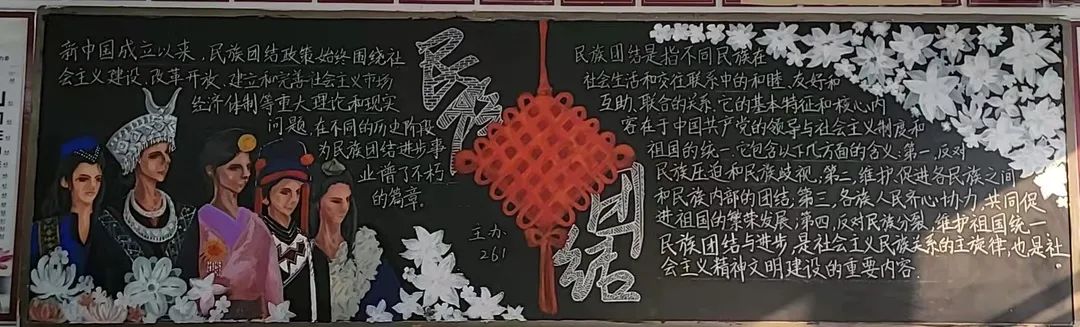 新中国成立以来，民族团结政策始终围绕社
会主义建设，改革开放，建立和完善社会主义市场
经济体制等重大理论和现实
问题，在不同的历史阶段
为民族团结进步事
业谱了不朽
的篇章。
主办
261
民族
团结
民族团结是指不同民族在
社会生活和交往联系中的和睦、友好和
互助、联合的关系。它的基本特征和核心内
容在于中国共产党的领导与社会主义制度和
祖国的统一。它包含以下几方面的含义：第一，反对
民族压迫和民族歧视；第二，维护促进各民族之间
和民族内部的团结；第三，各族人民齐心协力，共同促
进祖国的繁荣发展；第四，反对民族分裂，维护祖国统一
民族团结与进步，是社会主义民族关系的主旋律，也是社
会主义精神文明建设的重要内容.